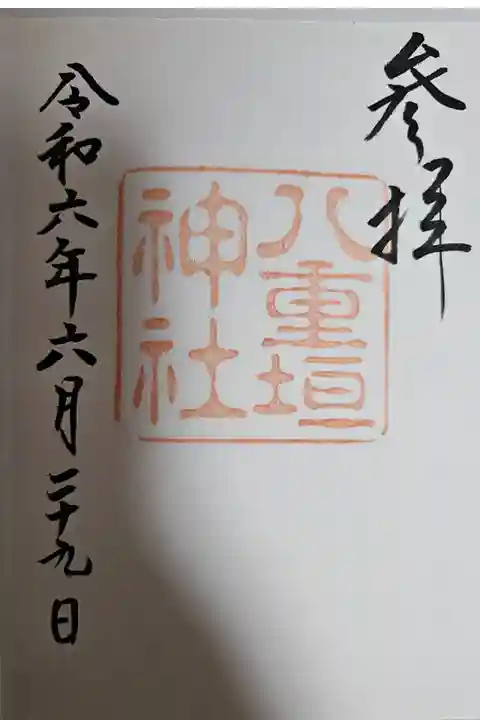 参拝
八重垣
神社
令和六年六月二十九日